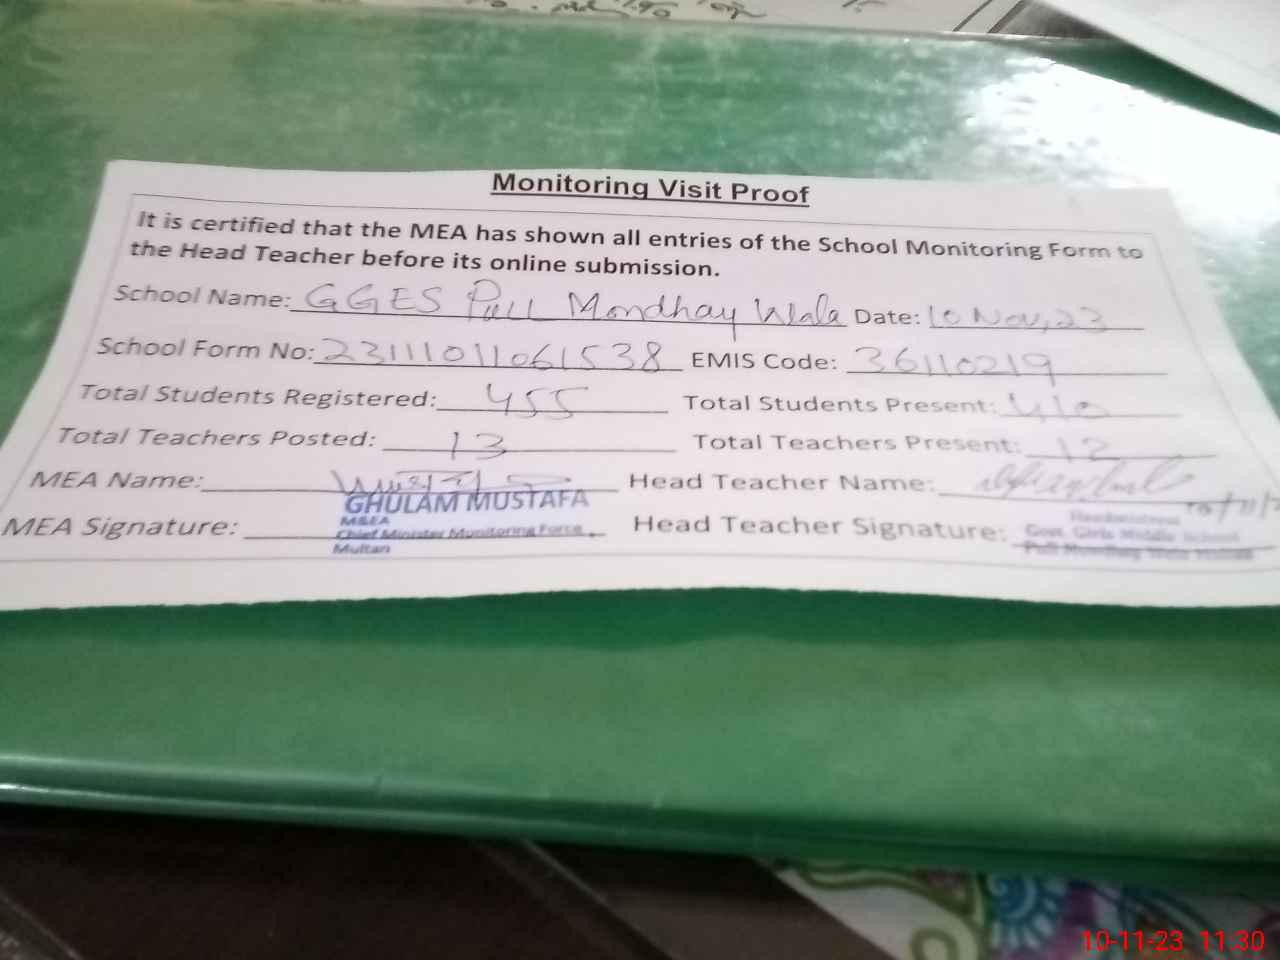 Monitoring Visit Proof
It is certified that the MEA has shown all entries of the School Monitoring Form to
the Head Teacher before its online submission.
School Name: GGES Pull Mondhay Wala Date: 10 Nov, 23
School Form No: 23111011061538 EMIS Code: 36110219
Total Students Registered: 455 Total Students Present: 410
Total Teachers Posted: 13 Total Teachers Present: 12
MEA Name: Head Teacher Name:
GHULAM MUSTAFA
MEA Signature: Head Teacher Signature:
M&EA
Chief Minister Monitoring Force
Multan
Headmistress
Govt. Girls Middle School
10-11-23 11:30